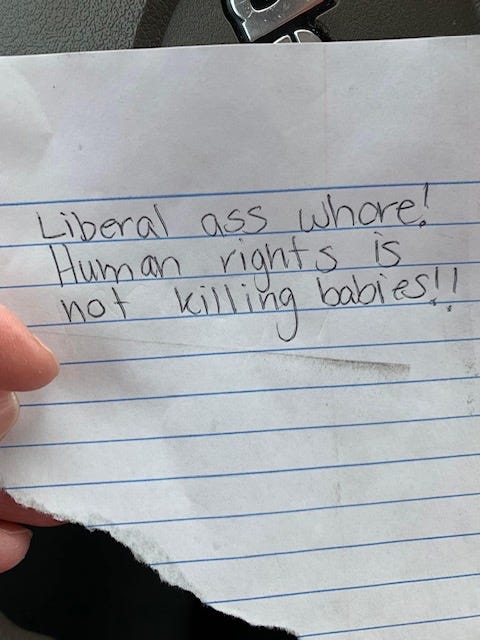 Liberal ass whore!
Human rights is
not killing babies!!